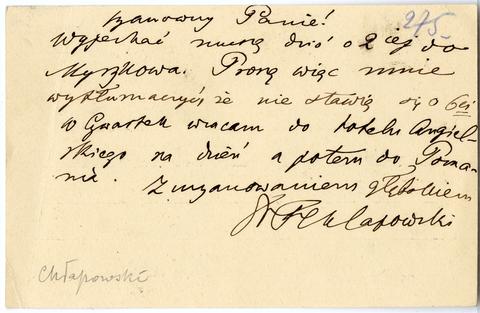 Szanowny Panie!
275
Wyjechać muszę dziś o 2 iej do
Myszkowa. Proszę więc mnie
wytłumaczyć że nie stawię się o 6ej
W Czwartek wracam do hotelu Angiel-
skiego na dzień a potem do Pozna-
nia.
Z uszanowaniem głębokiem
Chłapowski
Chłapowski